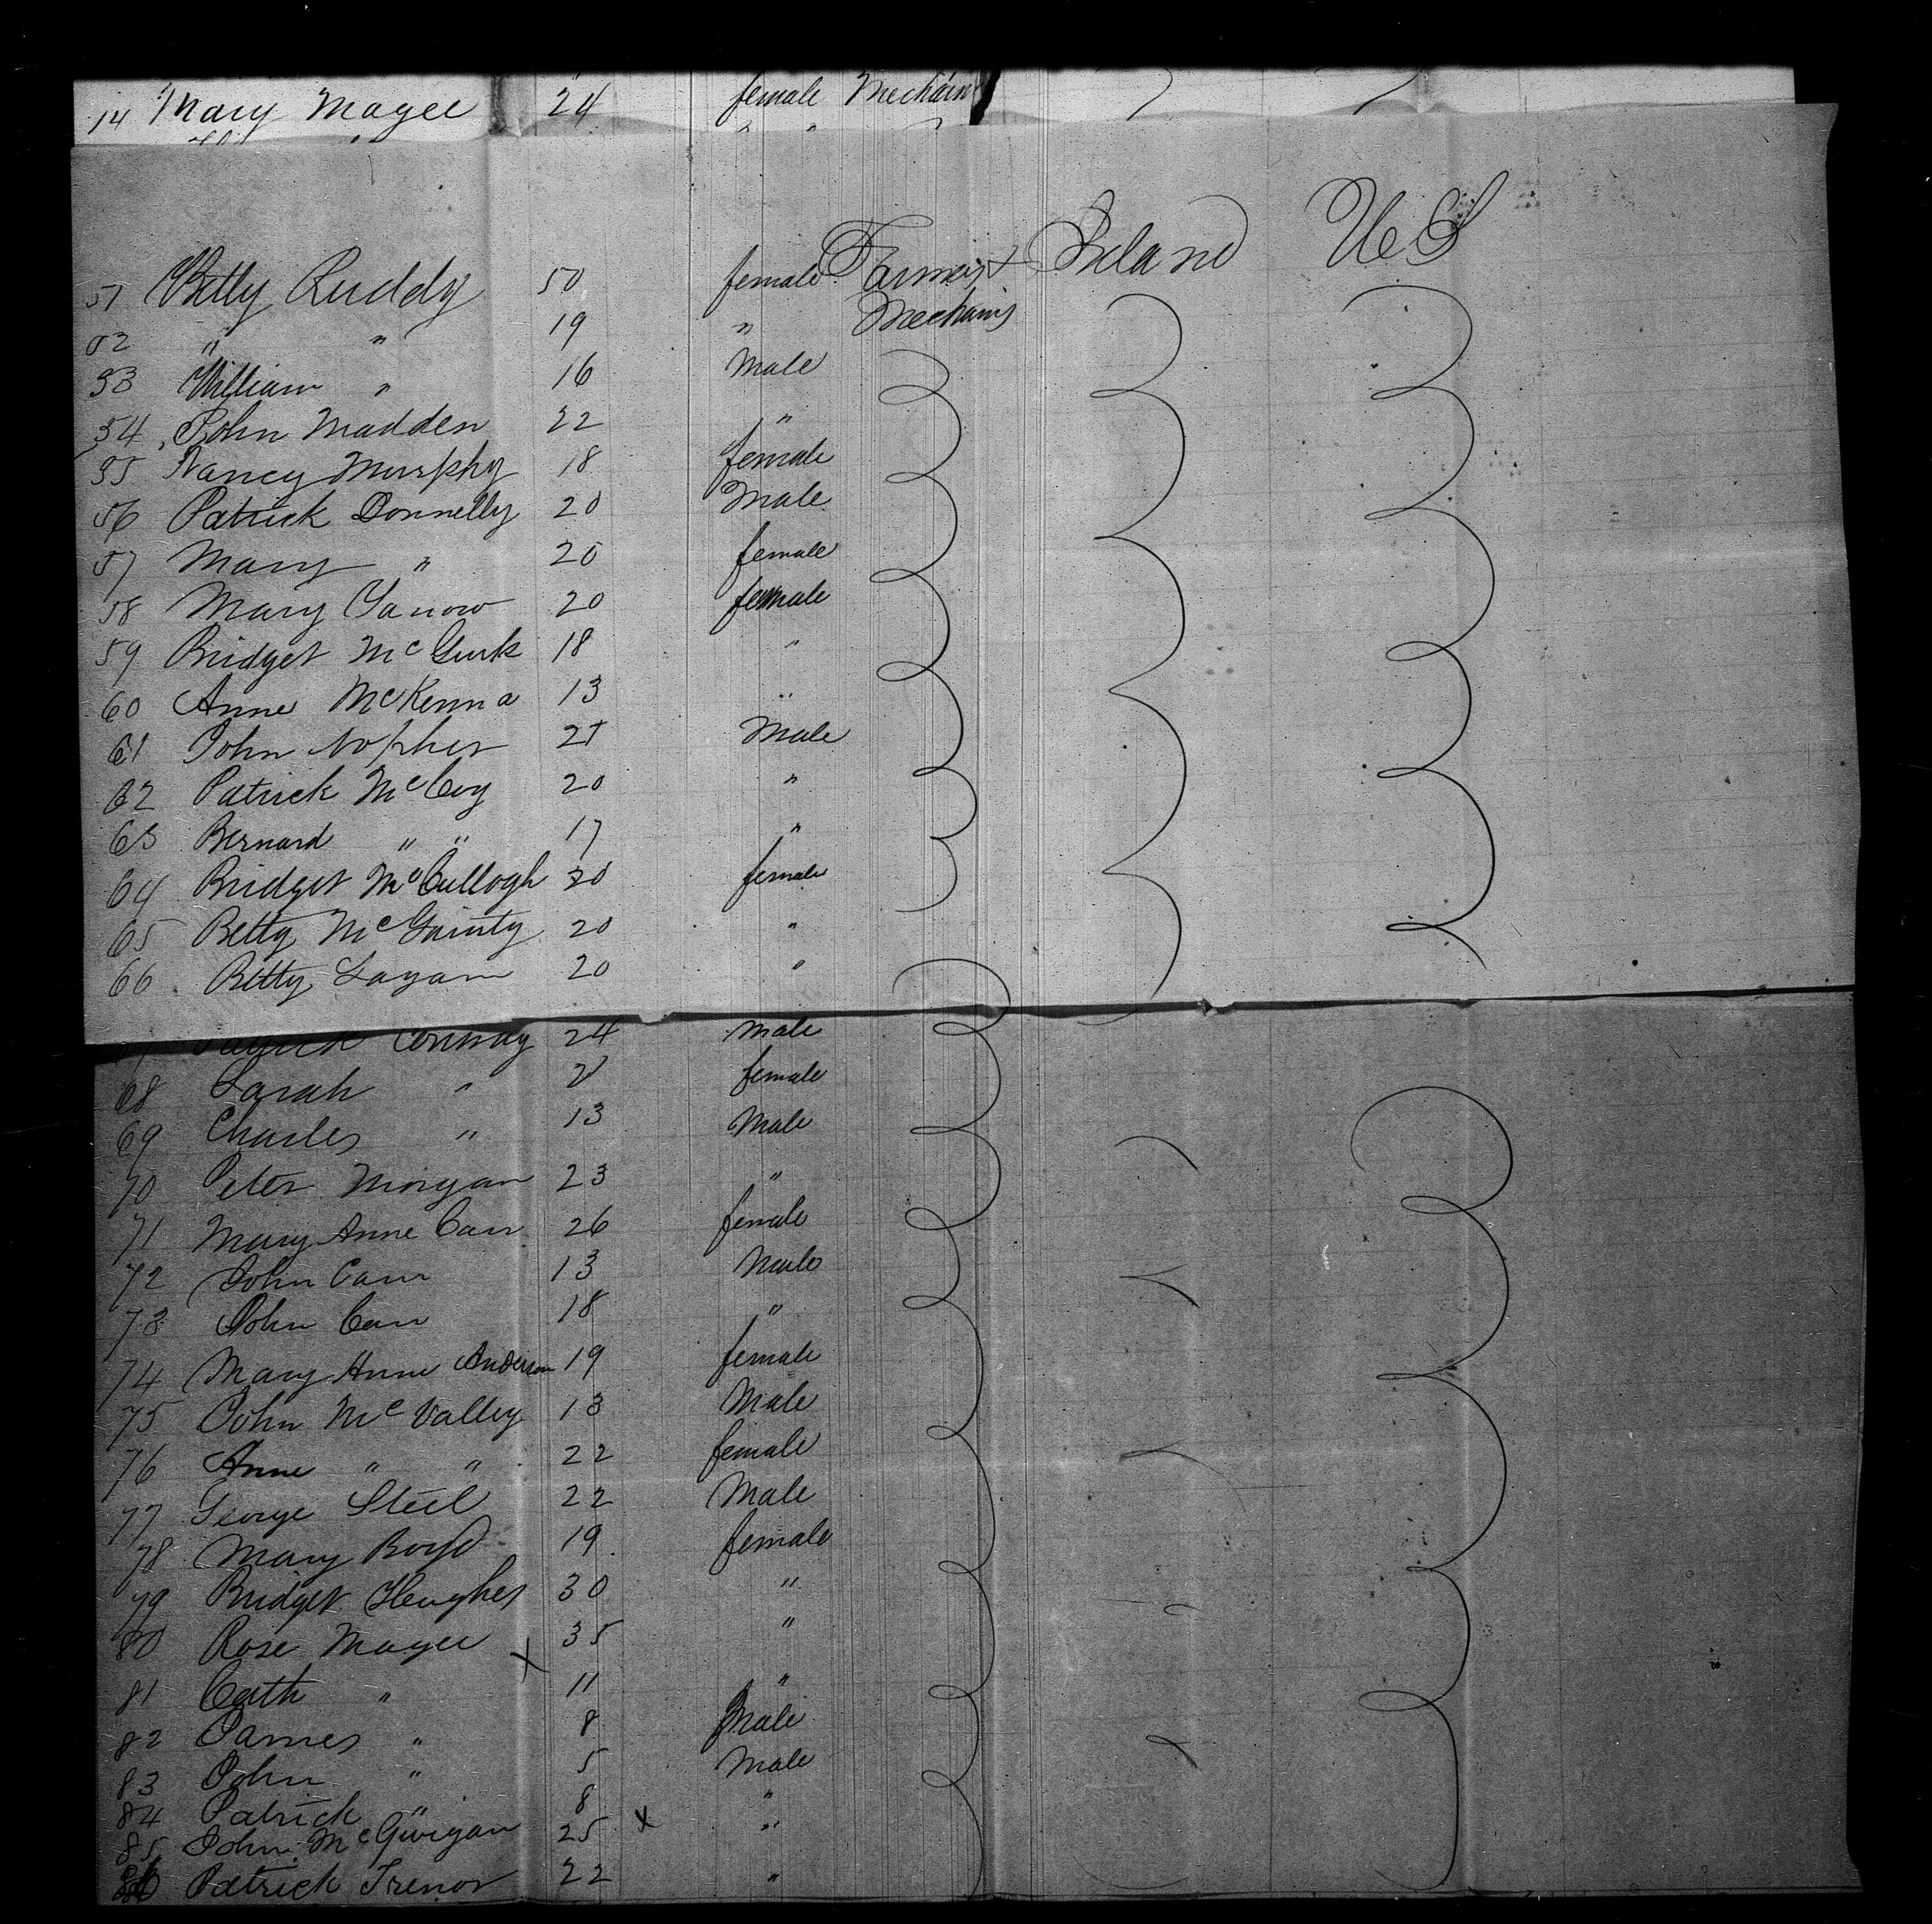 14 Mary Magee 24 female Mechanis
Farmers & Ireland U S
51 Betty Ruddy 50 female Mechanis
52 " " 19 "
53 William " 16 Male
54 John Madden 22 "
55 Nancy Murphy 18 female
56 Patrick Donnelly 20 Male
57 Mary " 20 female
58 Mary 20 female
59 Bridget McGurk 18 "
60 Anne McKenna 13 "
61 John 21 Male
62 Patrick McCoy 20 "
63 Bernard " " 17 "
64 Bridget McCullogh 20 female
65 Betty McGainty 20 "
66 Betty Lagan 20 "
Patrick Conway 24 Male
68 Sarah " female
69 Charles " 13 Male
70 Peter Morgan 23 "
71 Mary Anne Carr 26 female
72 John Carr 13 Male
73 John Carr 18 "
74 Mary Anne Anderson 19 female
75 John McValley 13 Male
76 Anne " " 22 female
77 George Steel 22 Male
78 Mary Boyd 19 female
79 Bridget Heughes 30 "
80 Rose Magee 35 "
81 Cath " x 11 "
82 James " 8 Male
83 John " 5 Male
84 Patrick " 8 "
85 John McGuigan 25 x "
86 Patrick Trenor 22 "